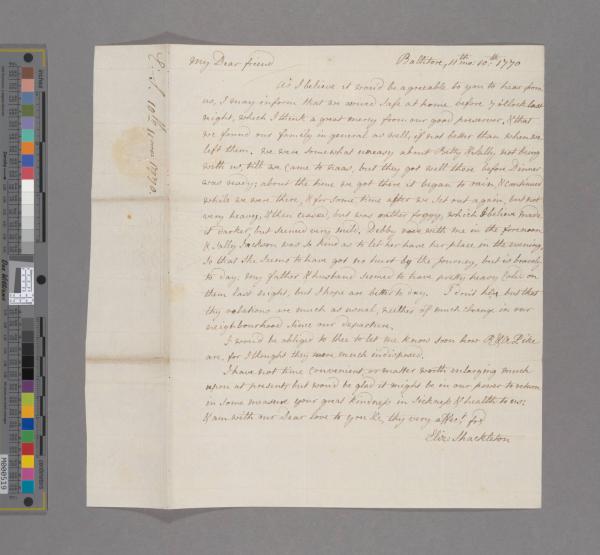 My Dear friend Ballitore, 11th mo. 10th 1770
As I believe it would be agreeable to you to hear from
us, I may inform that we arrived safe at home before 7 o'Clock last
night, which I think a great mercy from our good preserver, & that
we found our family in general as well, if not better than when we
left them. We were somewhat uneasy about Betty & Sally not being
with us, till we came to Naas, but they got well there before Dinner
was ready; about the time we got there it began to rain, & continued
while we were there, & for some time after we set out again, but not
very heavy, & then ceased, but was rather foggy, which I believe made
it darker, but seemed very mild. Debby rode with me in the forenoon
& Sally Jackson was so kind as to let her have her place in the evening,
so that she seems to have got no hurt by the Journey, but is bravely
to day. My father & husband seemed to have pretty heavy colds on
them last night, but I hope are better to day. I don't hear but that
thy relations are much as usual, neither of much change in our
neighbourhood since our departure.
I would be obliged to thee to let me know soon how R. & A. Pike
are, for I thought they were much indisposed.
I have not time convenient, or matter worth enlarging much
upon at present, but would be glad it might be in our power to return
in some measure your great kindness in Sickness & health to us;
& am with our dear love to you &c, thy very affect. frd
Eliz: Shackleton
E. S. 10th 11 mo. 1770
inches
centimeters
M000519